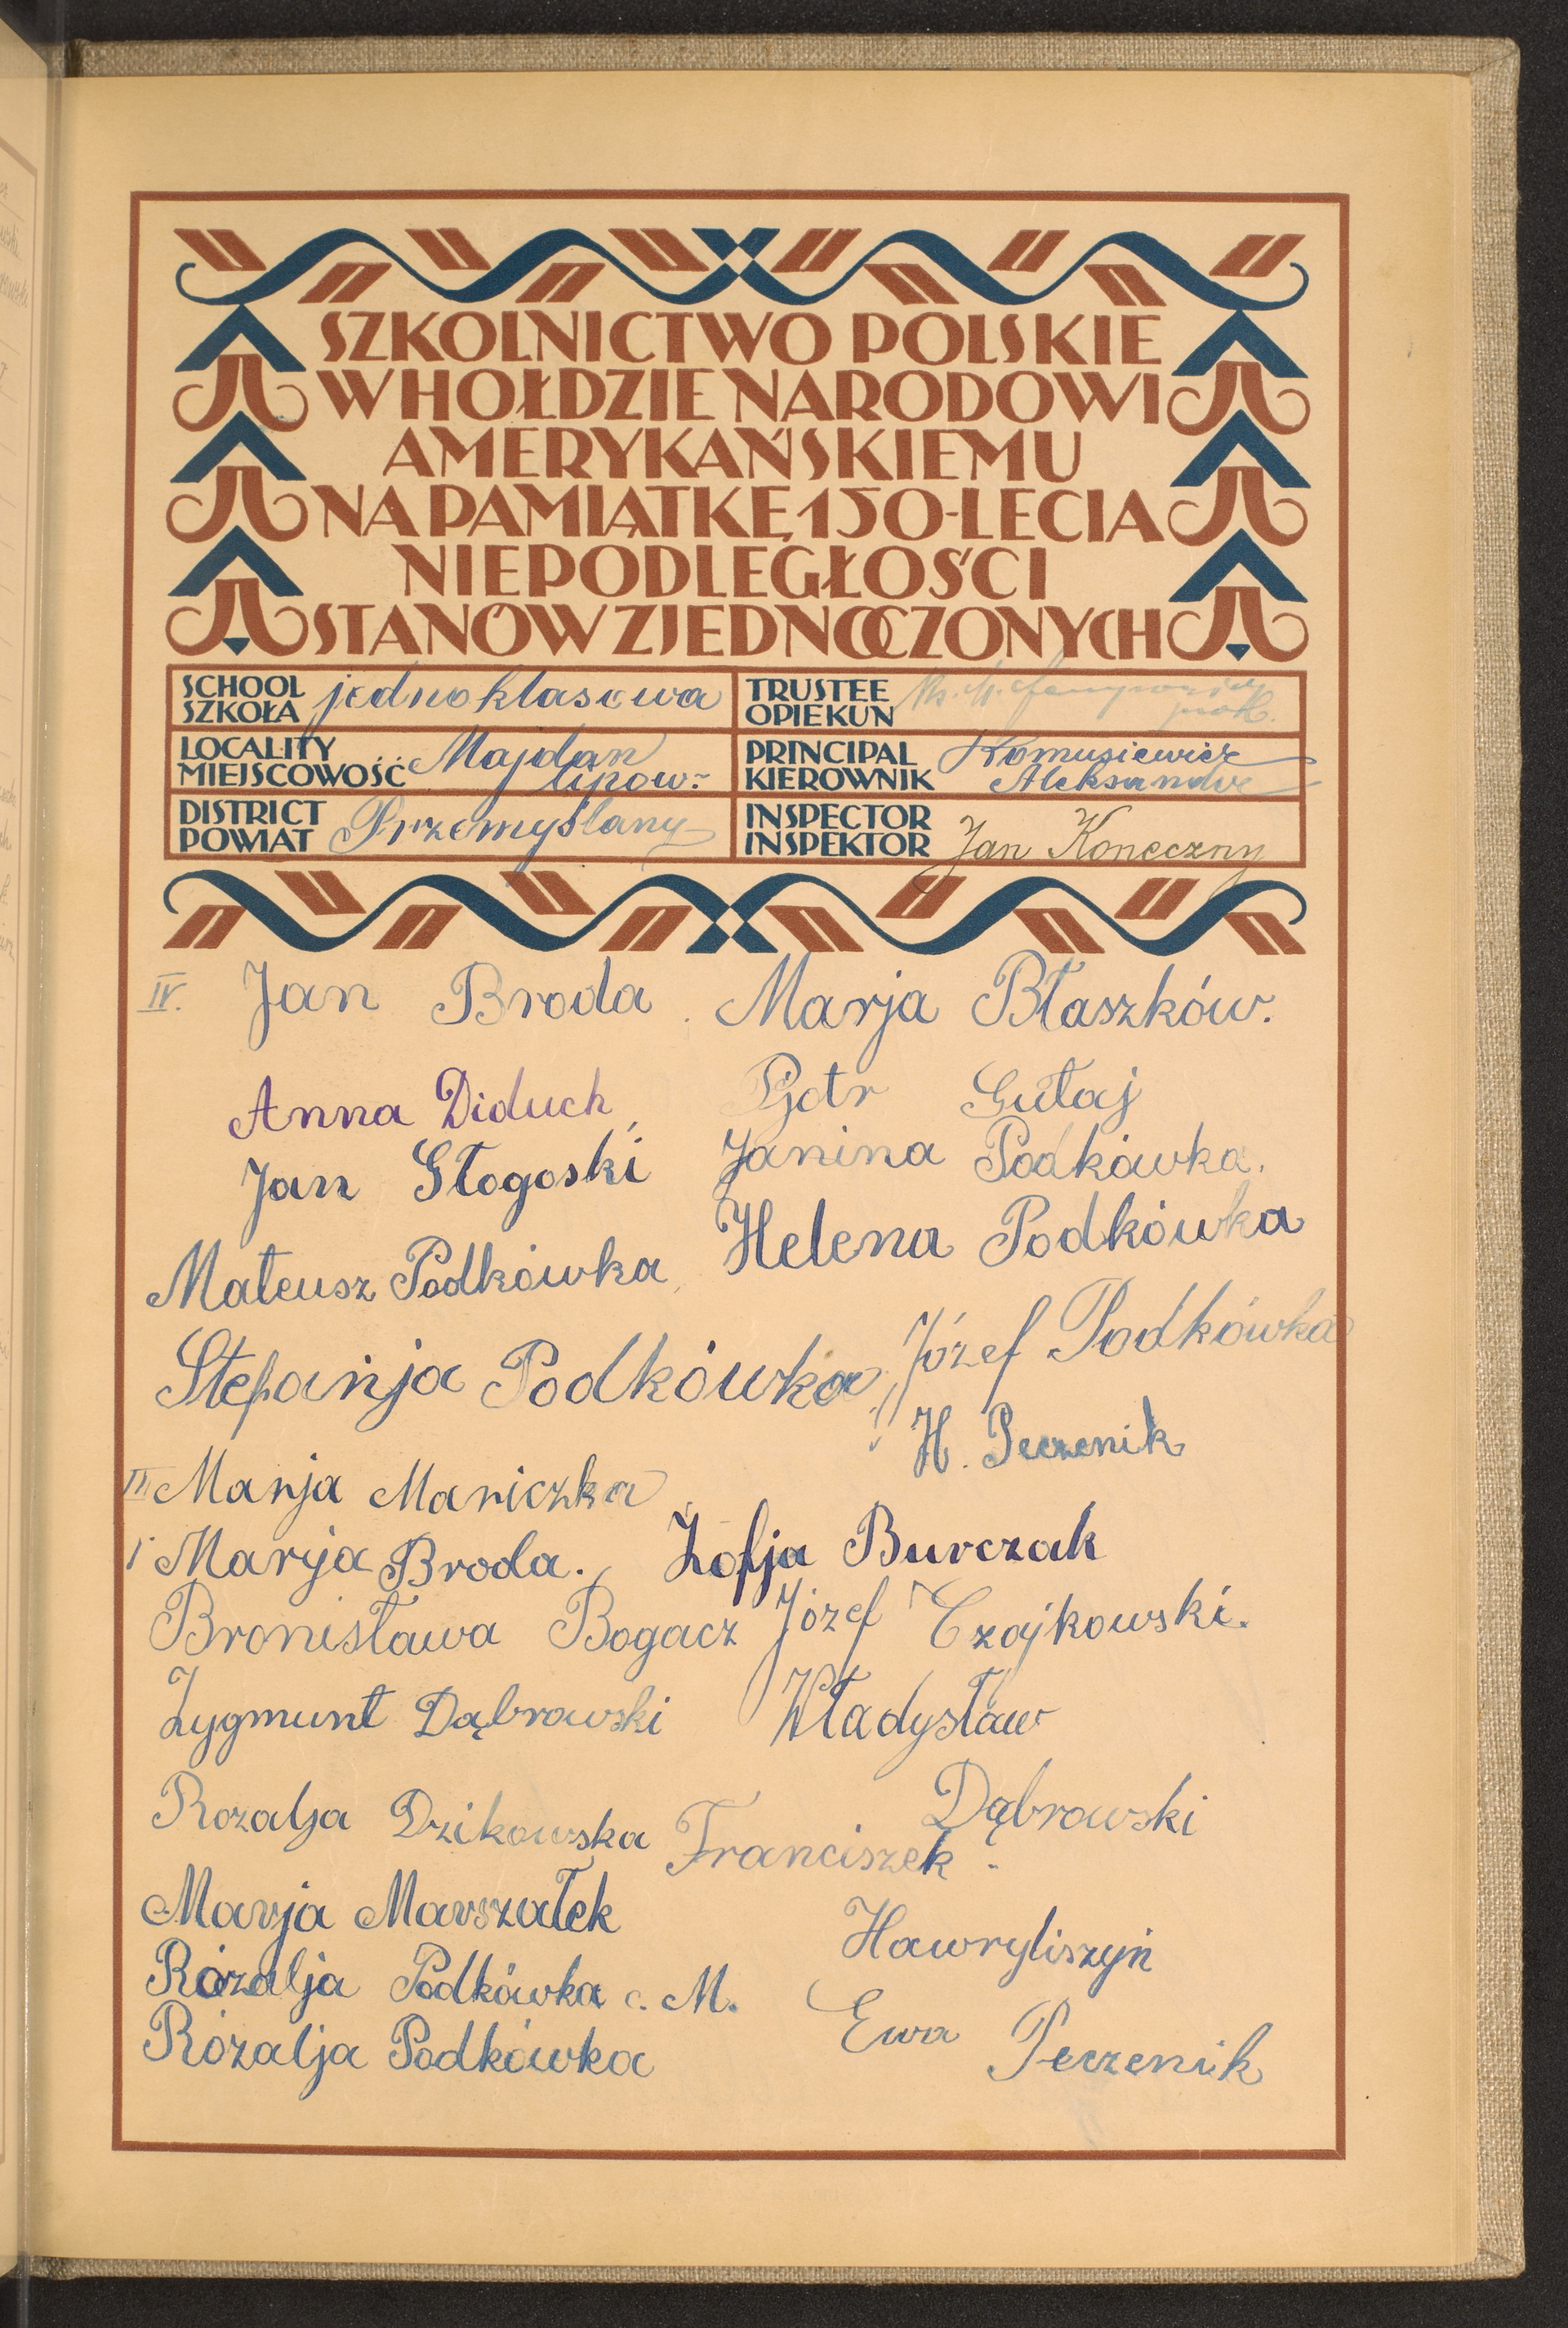 SZKOLNICTWO POLSKIE
W HOŁDZIE NARODOWI
AMERYKAŃSKIEMU
NA PAMIĄTKĘ 150-LECIA
NIEPODLEGŁOŚCI
STANÓW ZJEDNOCZONYCH
SCHOOL
SZKOŁA jednoklasowa
TRUSTEE
OPIEKUN
LOCALITY
MIEJSCOWOŚĆ Majdan
lipow.
PRINCIPAL Komusiewicz
KIEROWNIK Aleksander
DISTRICT
POWIAT Przemyślany
INSPECTOR
INSPEKTOR Jan Koneczny
IV. Jan Broda. Marja Błaszków.
Anna Diduch, Pjotr Gułaj
Jan Głogoski Janina Podkówka.
Mateusz Podkówka, Helena Podkówka
Stefanja Podkówka, Józef Podkówka
H. Peczenik
II Marja Maniczka
I Marja Broda. Zofja Burczak
Bronisława Bogacz Józef Czajkowski.
Zygmunt Dąbrowski Władysław
Dąbrowski
Rozalja Dzikowska Franciszek
Hawryliszyń
Marja Marszałek
Rózalja Podkówka c. M.
Ewa Peczenik
Rózalja Podkówka